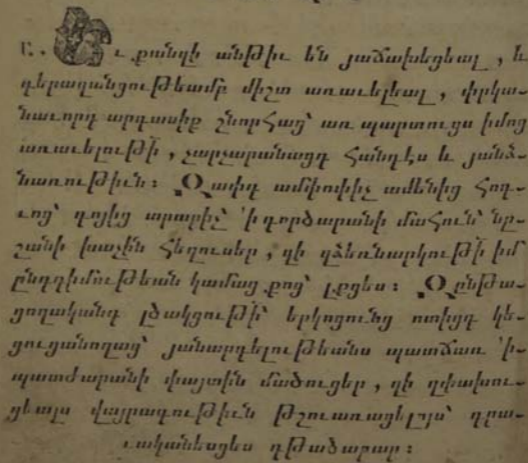 Բ. Եւ քանզի անթիւ են յաճախեցեալ, և
գերազանցութեամբ միշտ առաւելեալ, փրկա-
նաւորդ արգասիք շնորհաց՝ առ պարտուցս իմոց
առաւելութի՛, չարչարանացդ հանդէս և յանձ-
նառութիւն։ Զափդ ամփոփիչ ամենից հոգ-
ւոց՝ գոյից արարիչ՝ ՚ի գործարանի մահուն՝ նը-
շանի խաչին հեղուսեր, զի զձեռնարկութի՛ իմ
ընդդիմութեան կամաց քոց՝ լքցես։ Զընթա-
ցողականդ լծակցութի՛՝ երկոցունց ոտիցդ կե-
ցուցանողաց՝ յանարգելութեանս պատճառ ՚ի
պատժարանի փայտին մածուցեր, զի զվախու-
ցեալս վայրագութիւն թշուառացելոյս՝ դրա-
ւականեսցես գթածաբար։